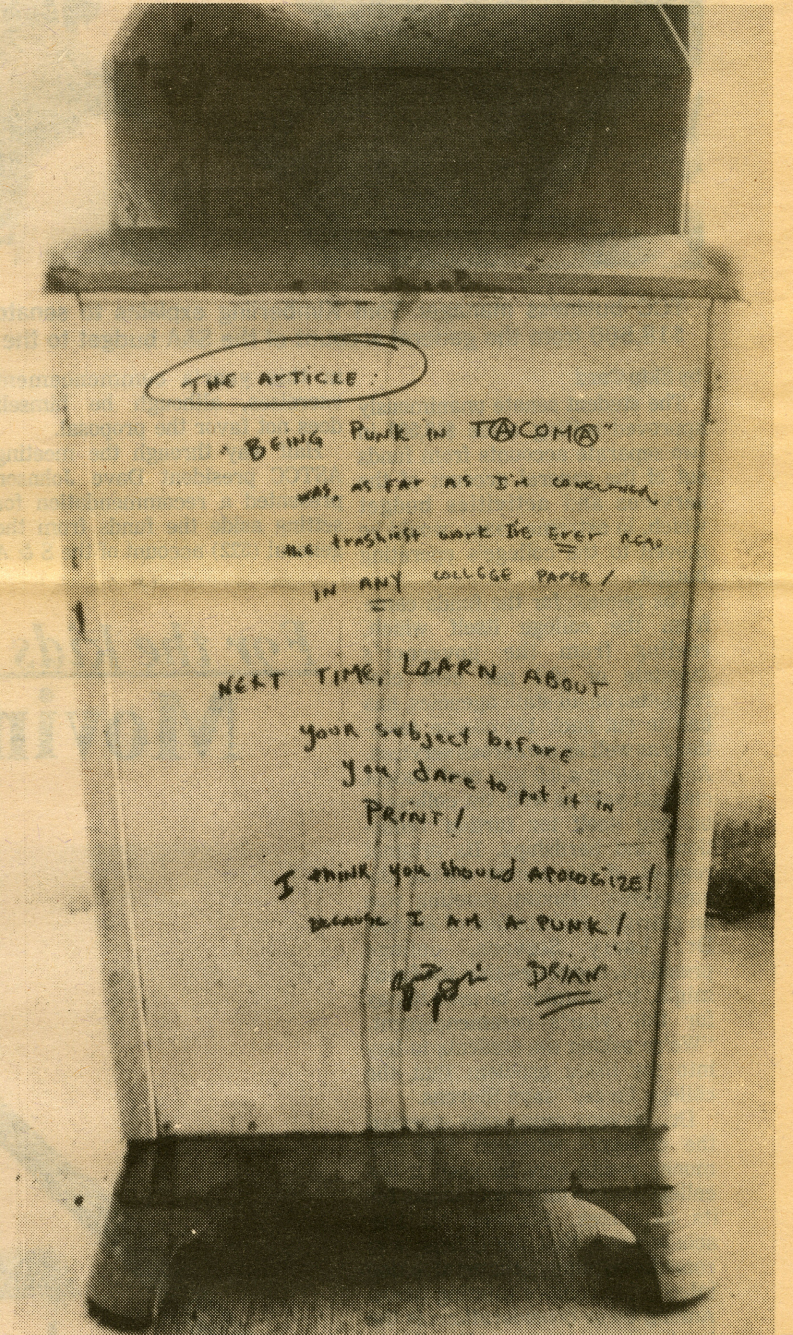 THE ArTiCLE:
"BEING PUNK iN TⒶCOMⒶ"
WAS, AS FAr AS I'M CONCERNED
the trashiest work I'VE Ever READ
IN ANY COLLEGE PAPER!
NEXT TIME, LEARN ABOUT
your subject before
you dare to put it in
PRiNT!
I thiNK you should APOLOGIZE!
BECAUSE I AM A PUNK!
BRIAN
For the kids
Movin